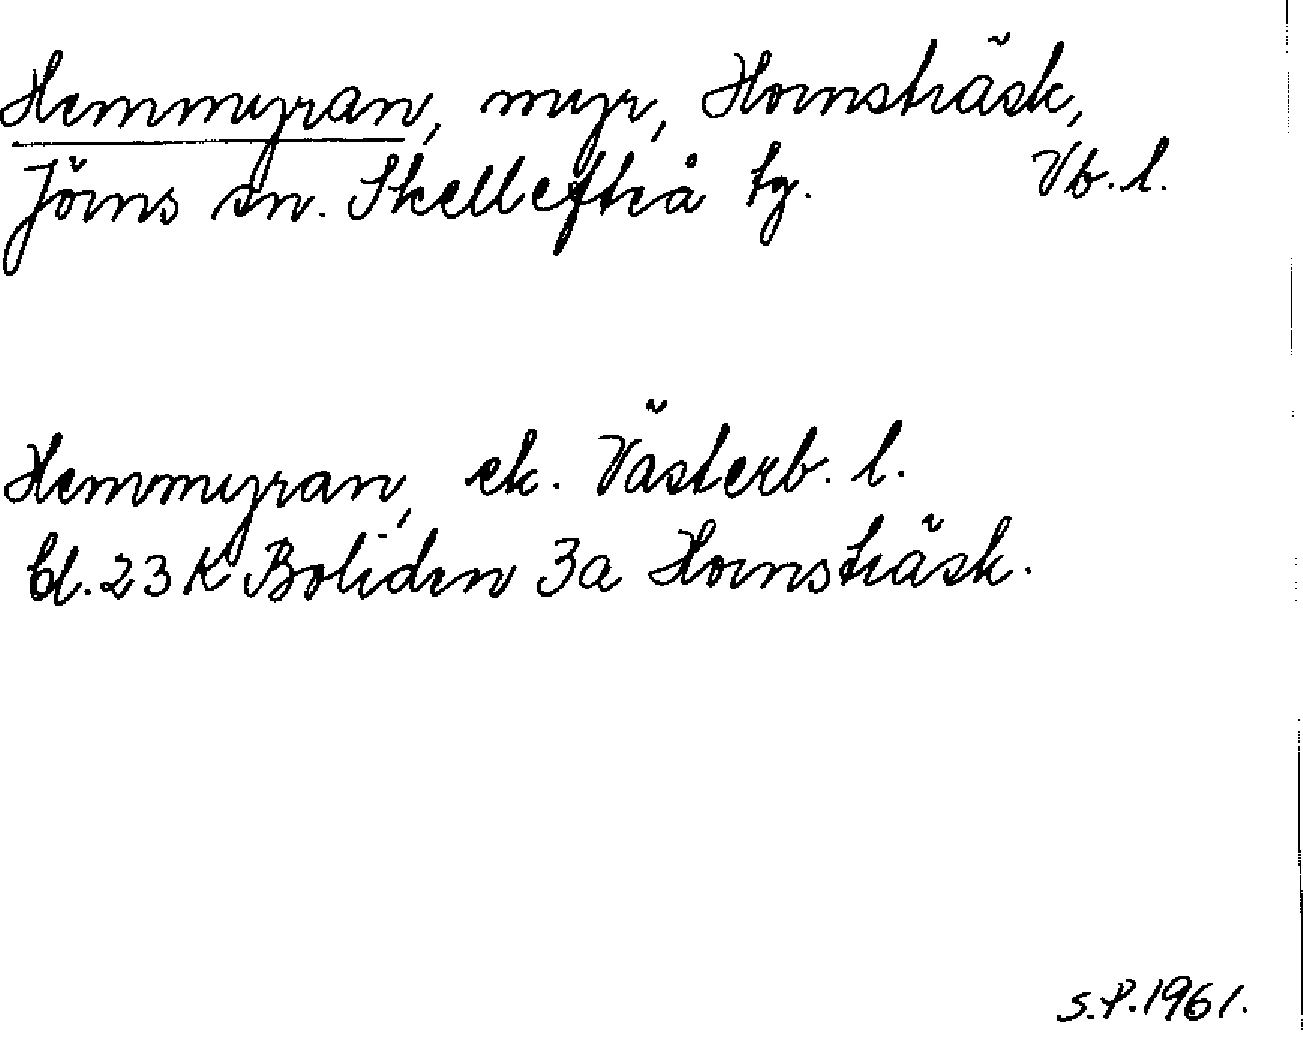 Hemmyran, myr, Hornsträsk,
Jörns sn. Skellefteå tg. Vb. l.
Hemmyran, ek. Västerb. l.
bl. 23 K Boliden 3a Hornsträsk.
S.P. 1961.